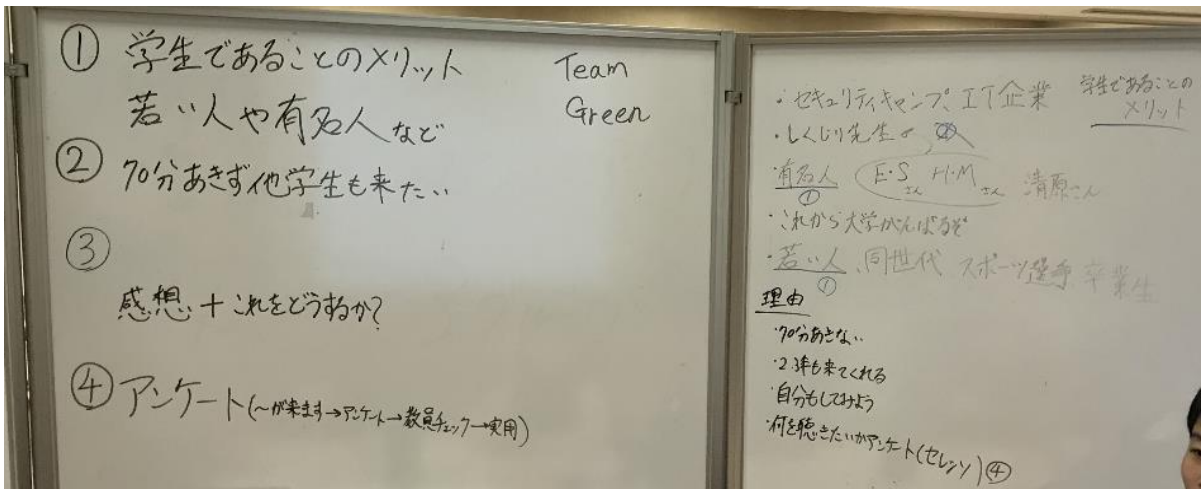 ① 学生であることのメリット
若い人や有名人など
Team
Green
② 70分あきず他学生も来たい
③
感想 + これをどうするか?
④ アンケート(〜が来ます→アンケート→教員チェック→実用)
学生であることの
メリット
・セキュリティキャンプ、IT企業
・しくじり先生
・有名人 E・Sさん H・Mさん 清原さん
①
・これから大学がんばるぞ
・若い人、同世代 スポーツ選手 卒業生
①
理由
・70分あきない
・2.3年も来てくれる
・自分もしてみよう
・何を聴きたいかアンケート(セレッソ)④